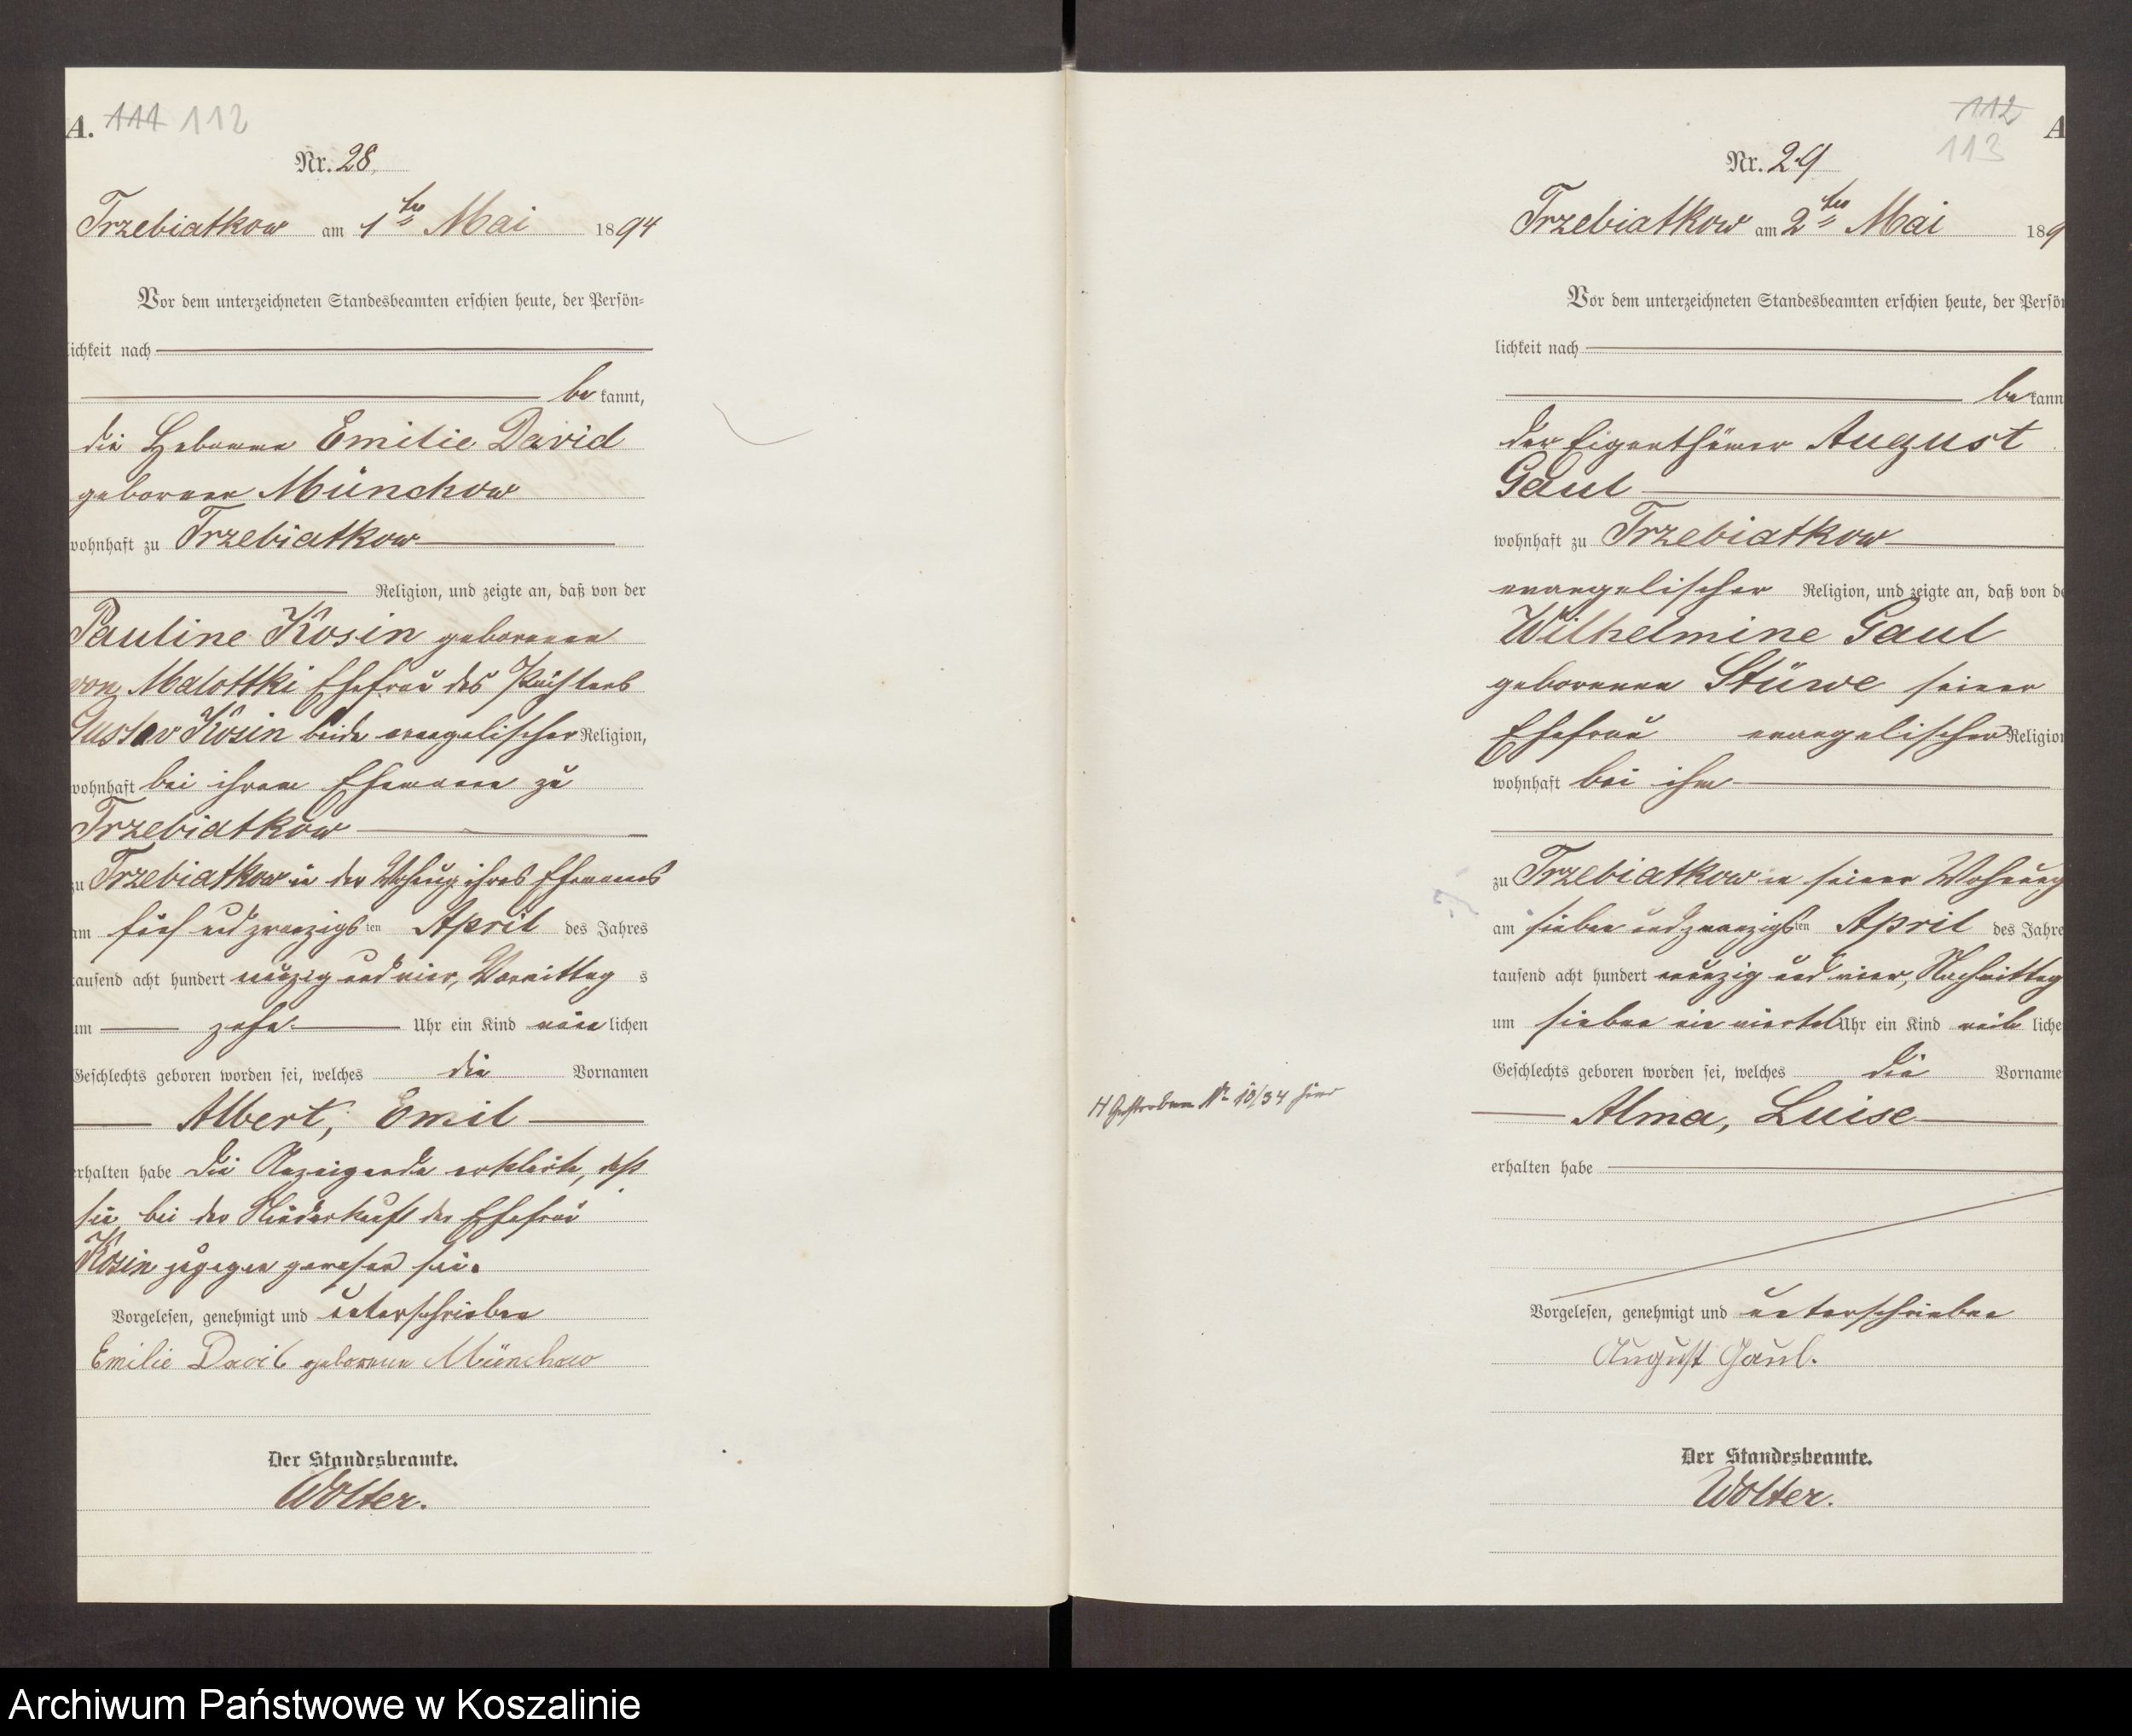 A. 111 112
Nr. 28.
Trzebiatkow am 1ten Mai 1894
Vor dem unterzeichneten Standesbeamten erschien heute, der Persön-
lichkeit nach
bekannt,
die Hebamme Emilie David
geborene Münchow
wohnhaft zu Trzebiatkow
Religion, und zeigte an, daß von der
Pauline Kosin geborenen
von Malottki Ehefrau des Pächters
Gustav Kosin beide evangelischer Religion,
wohnhaft bei ihrem Ehemanne zu
Trzebiatkow
zu Trzebiatkow in der Wohnung ihres Ehemannes
am fünf und zwanzigsten April des Jahres
tausend acht hundert neunzig und vier, Vormittags
um zehn Uhr ein Kind männlichen
Geschlechts geboren worden sei, welches die Vornamen
Albert, Emil
erhalten habe die Anzeigende erklärte, daß
sie bei der Niederkunft der Ehefrau
Kosin zugegen gewesen sei.
Vorgelesen, genehmigt und unterschrieben
Emilie David geborene Münchow
Der Standesbeamte.
Wolter.
112 A
113
Nr. 29
Trzebiatkow am 2ten Mai 189
Vor dem unterzeichneten Standesbeamten erschien heute, der Persön
lichkeit nach
bekann
der Eigenthümer August
Gaul
wohnhaft zu Trzebiatkow
evangelischer Religion, und zeigte an, daß von de
Wilhelmine Gaul
geborenen Stüwe seiner
Ehefrau evangelischer Religion
wohnhaft bei ihm
zu Trzebiatkow in seiner Wohnung
am sieben und zwanzigsten April des Jahre
tausend acht hundert neunzig und vier, Nachmittag
um sieben ein viertel Uhr ein Kind weibliche
Geschlechts geboren worden sei, welches die Vorname
Alma, Luise
H Gestorben Nr 10/34 hier
erhalten habe
Vorgelesen, genehmigt und unterschrieben
August Gaul.
Der Standesbeamte.
Wolter.
Archiwum Państwowe w Koszalinie